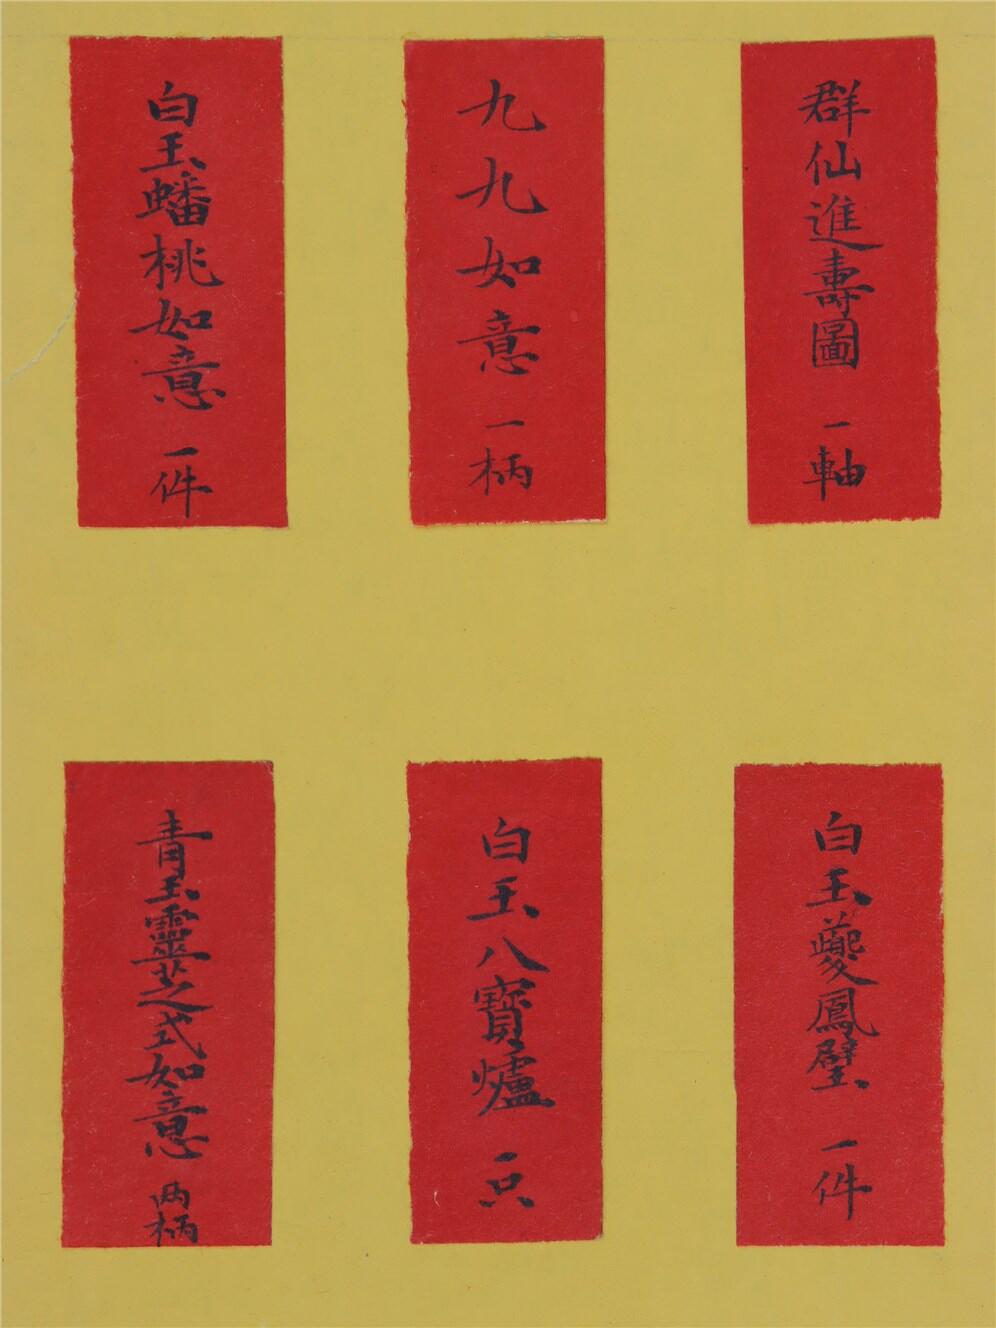 群仙進壽圖 一軸
九九如意 一柄
白玉蟠桃如意 一件
白玉夔鳳璧 一件
白玉八寶爐 一只
青玉靈芝式如意 两柄